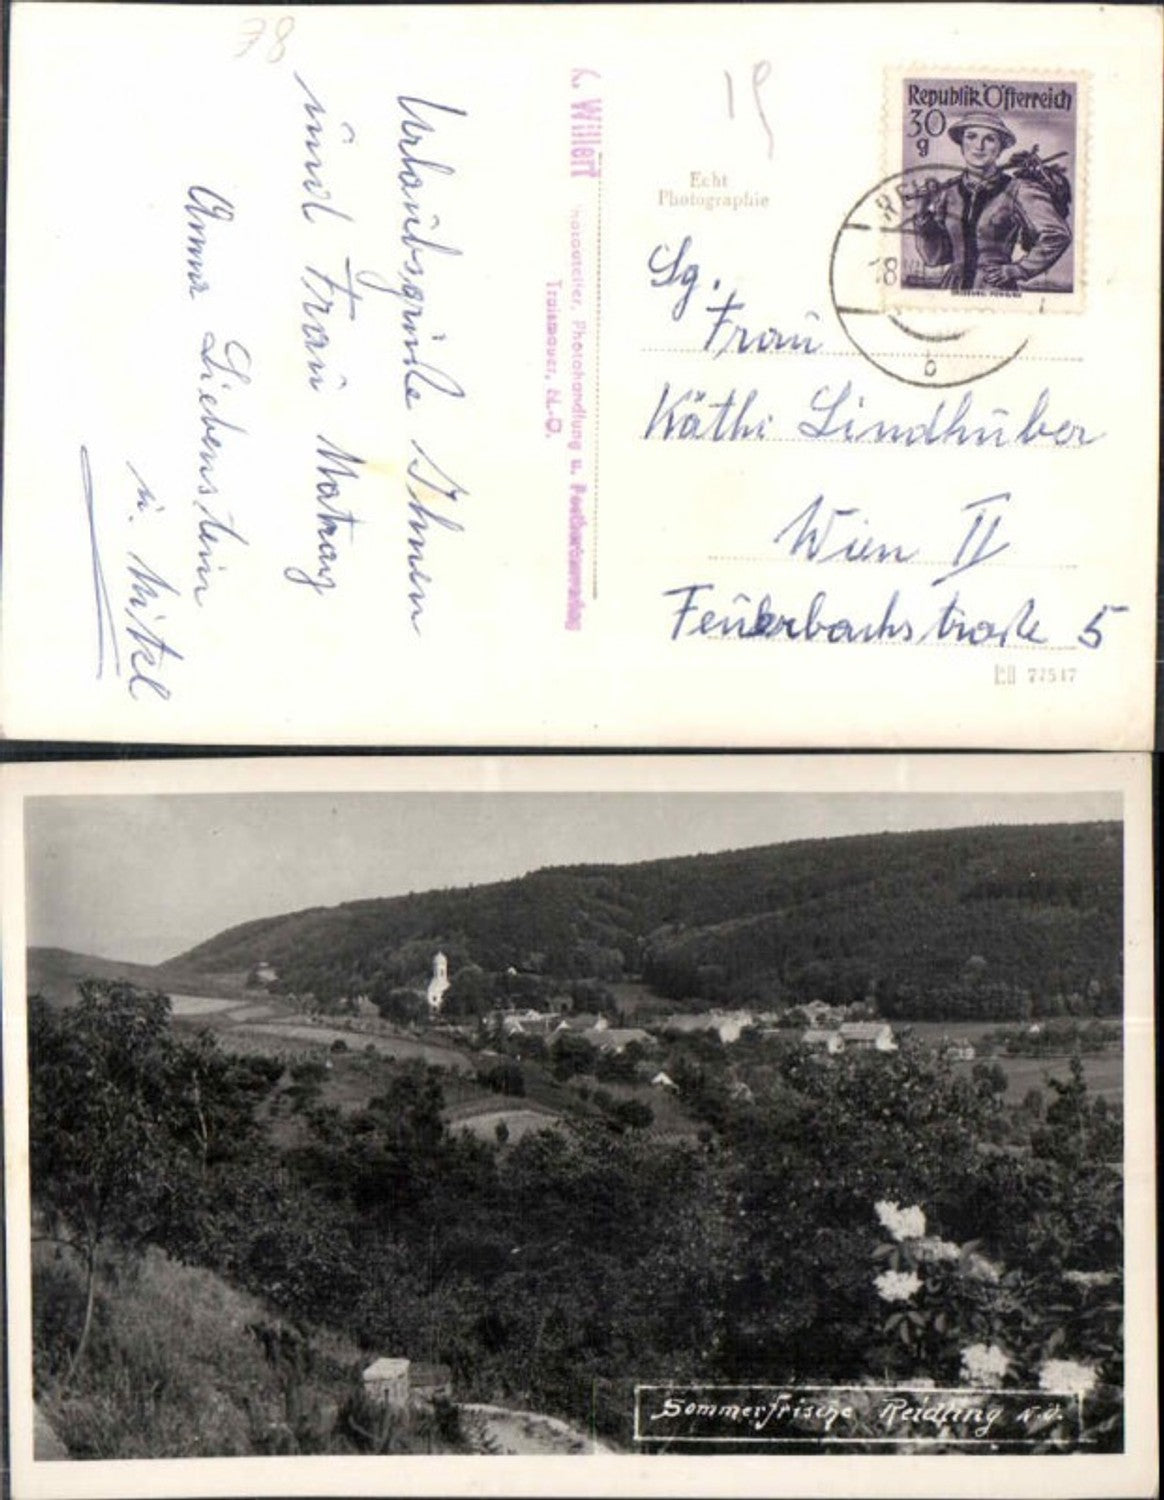 78
Urlaubsgrüße Ihnen
und Frau Matzag
Anna Liebenstein
u. Mitzl
Willert
Photoatelier, Photohandlung u. Postkartenverlag
Traismauer, N.-Ö.
19
Echt
Photographie
Republik Österreich
30
g
18
b
Sg.
Frau
Käthi Lindhuber
Wien II
Feuerbachstraße 5
Sommerfrische Reidling N.Ö.